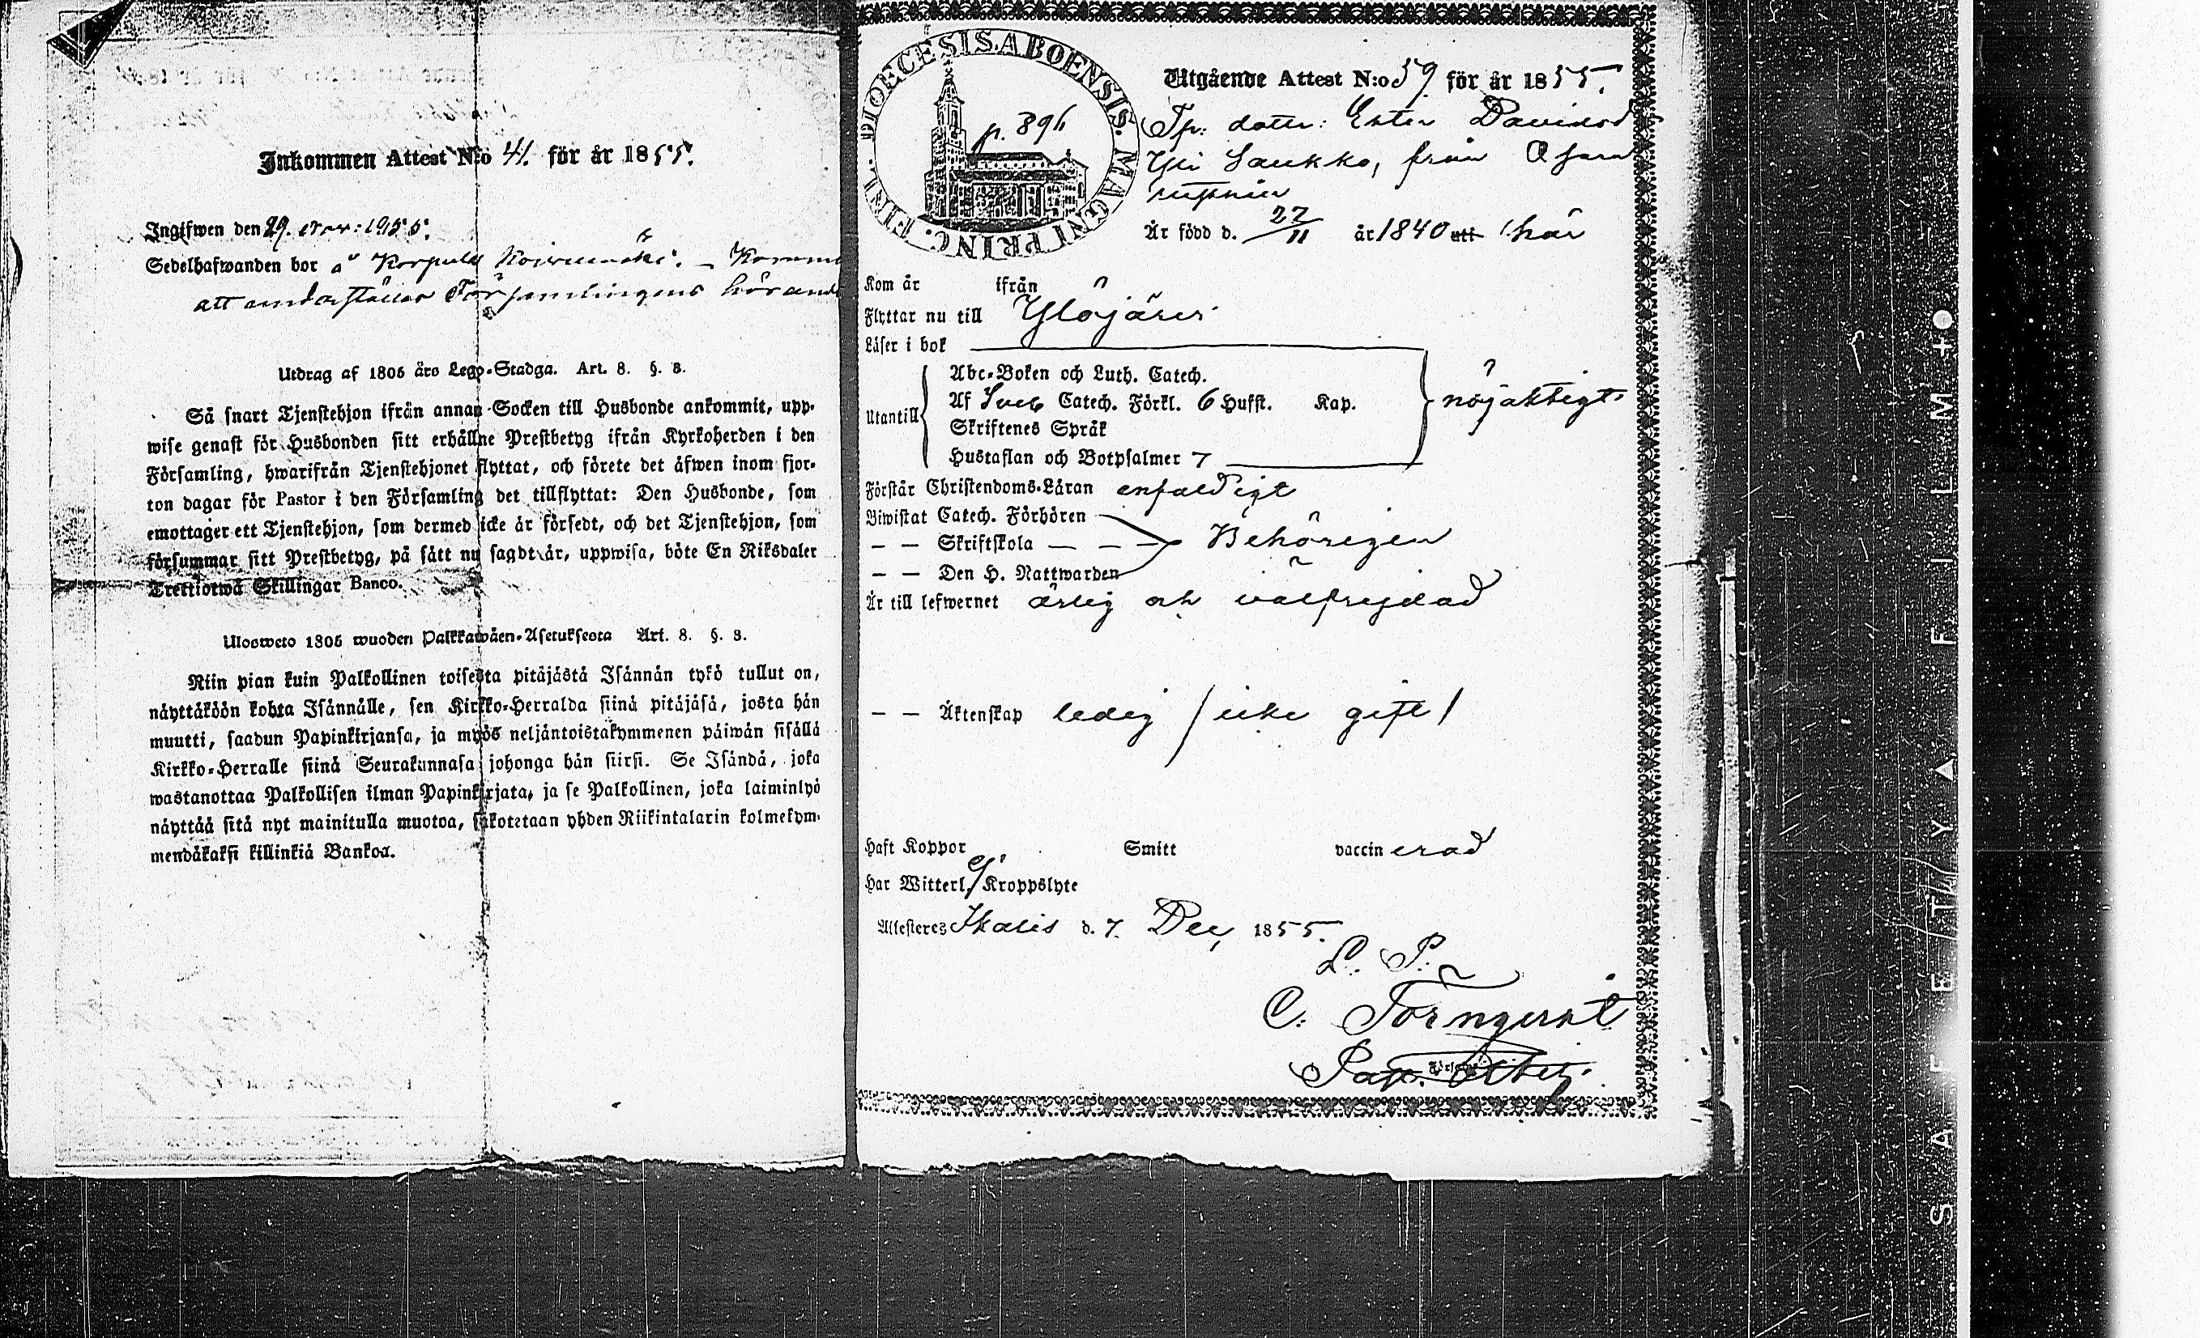 Inkommen Attest N:o 41. för år 1855.
Ingifwen den 29.
Sedelhafwanden bor å Korpula
att Församlingens hörande
Utdrag af 1805 års Lego-Stadga. Art. 8. §. 3.
Så snart Tjenstehjon ifrån annan Socken till Husbonde ankommit, upp-
wise genast för Husbonden sitt erhållne Prestbetyg ifrån Kyrkoherden i den
Församling, hwarifrån Tjenstehjonet flyttat, och förete det äfwen inom fjor-
ton dagar för Pastor i den Församling det tillflyttat: Den Husbonde, som
emottager ett Tjenstehjon, som dermed icke är försedt, och det Tjenstehjon, som
försummar sitt Prestbetyg, på sätt nu sagdt är, uppwisa, böte En Riksdaler
Trettiotwå Skillingar Banco.
Uloswéto 1805 wuoden Palkkawäen-Asetuksesta Art. 8. §. 3.
Niin pian kuin Palkollinen toisesta pitäjästä Isännän tykö tullut on,
näyttäköön kohta Isännälle, sen Kirkko-Herralda siinä pitäjäsä, josta hän
muutti, saadun Papinkirjansa, ja myös neljäntoistakymmenen päiwän sisällä
Kirkko-Herralle siinä Seurakunnasa johonga hän siirsi. Se Isändä, joka
wastanottaa Palkollisen ilman Papinkirjata, ja se Palkollinen, joka laiminlyö
näyttää sitä nyt mainitulla muotoa, sakotetaan yhden Riikintalarin kolmekym-
mendäkaksi killinkiä Bankoa.
DIOECESIS. ABOENSIS. MAGNI PRINC. FINL.
p. 896
Utgående Attest N:o 59 för år 1855.
dottr: Ester Davidsd
Yli Saukko, från Osara
Är född d. 27/11 år 1840 uti här
Kom år ifrån
Flyttar nu till Ylöjärvi
Läser i bok
Utantill
Abc-Boken och Luth. Catech.
Af Sveb Catech. Förkl. 6 Hufst. Kap.
nöjaktigt
Skriftenes Språk
Hustaflan och Botpsalmer 7
Förstår Christendoms-Läran enfaldigt
Biwistat Catech. Förhören
— — Skriftskola — — — Behörigen
— — Den H. Nattwarden
Är till lefwernet ärlig och välfrejdad
— — Äktenskap ledig / icke gift /
Haft Koppor Smitt vaccinerad
Har Witterl. ej Kroppslyte
Attesteres Ikalis d. 7. Dec, 1855.
C. Törnqvist